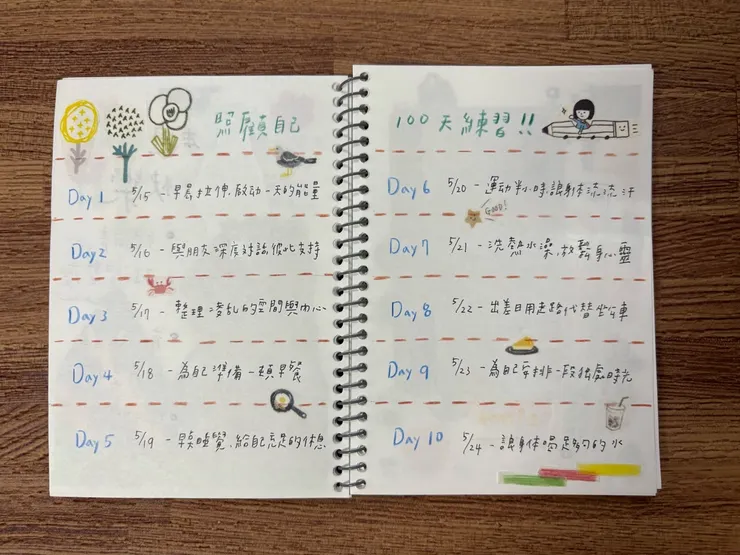 照顧自己
Day 1 5/15 - 早晨拉伸,啟动一天的能量
Day 2 5/16 - 與朋友深度対話,彼此支持
Day 3 5/17 - 整理凌乱的空間與内心
Day 4 5/18 - 為自己準備一頓早餐
Day 5 5/19 - 早点睡覺,給自己充足的休息
100天練習!!
Day 6 5/20 - 運动半小時,讓身体流流汗
GOOD!
Day 7 5/21 - 洗熱水澡,放鬆身心靈
Day 8 5/22 - 出差日用走路代替坐車
Day 9 5/23 - 為自己安排一段独處時光
Day 10 5/24 - 讓身体喝足夠的水